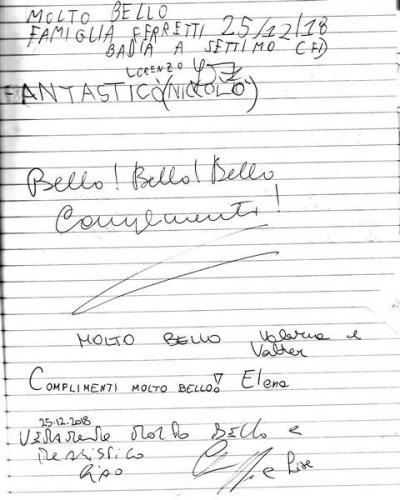 MOLTO BELLO
FAMIGLIA FERRETTI 25/12/18
BADIA A SETTIMO (FI)
LORENZO
FANTASTICO (NICCOLO')
Bello! Bello! Bello
Complimenti!
MOLTO BELLO Valeria e
Valter
COMPLIMENTI MOLTO BELLO! Elena
25.12.2018
Veramente molto BELLO e
realistico
Ciao